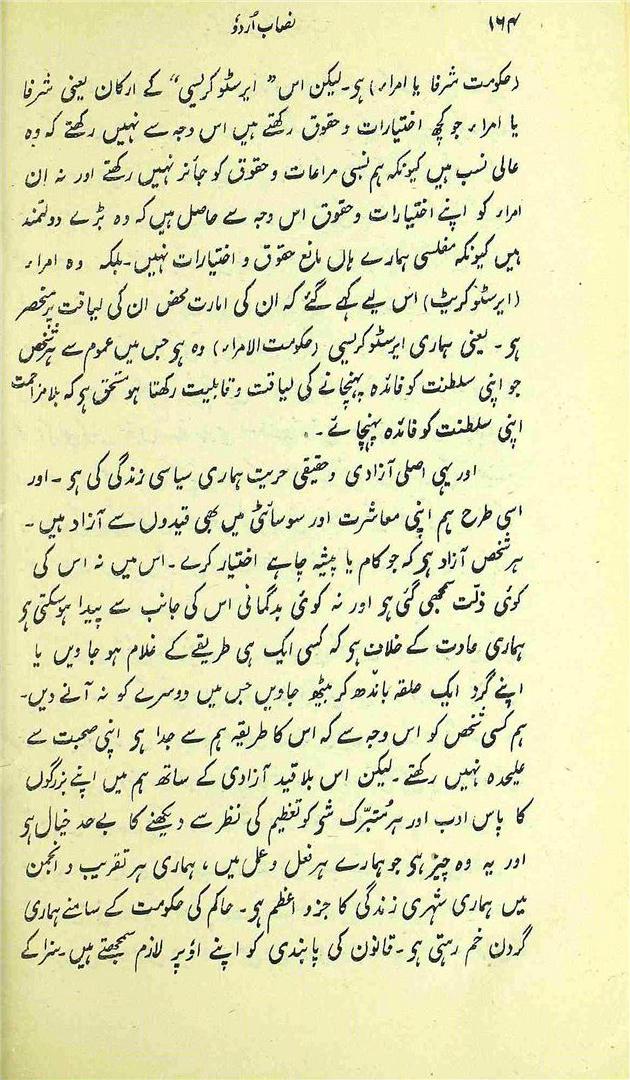 ۱۶۴ نصاب اُردؤ
(حکومت شرفا یا امراء) ہو۔ لیکن اس "ایرسٹوکریسی" کے ارکان یعنی شرفا
یا امراء جو کچھ اختیارات و حقوق رکھتے ہیں اس وجہ سے نہیں رکھتے کہ وہ
عالی نسب ہیں کیونکہ ہم نسبی مراعات و حقوق کو جائز نہیں رکھتے اور نہ اِن
امراء کو اپنے اختیارات وحقوق اس وجہ سے حاصل ہیں کہ وہ بڑے دولتمند
ہیں کیونکہ مفلسی ہمارے ہاں مانع حقوق و اختیارات نہیں۔ بلکہ وہ امراء
(ایرسٹوکریٹ) اس لیے کہے گئے کہ ان کی امارت محض ان کی لیاقت پر منحصر
ہو۔ یعنی ہماری ایرسٹوکریسی (حکومت الامراء) وہ ہو جس میں عموم سے ہر شخص
جو اپنی سلطنت کو فائدہ پہنچانے کی لیاقت و قابلیت رکھتا ہو مستحق ہو کہ بلا مزاحمت
اپنی سلطنت کو فائدہ پہنچائے۔
اور یہی اصلی آزادی وحقیقی حریت ہماری سیاسی زندگی کی ہو۔ اور
اسی طرح ہم اپنی معاشرت اور سوسائٹی میں بھی قیدوں سے آزاد ہیں۔
ہر شخص آزاد ہو کہ جو کام یا پیشہ چاہے اختیار کرے۔ اس میں نہ اس کی
کوئی ذلّت سمجھی گئی ہو اور نہ کوئی بدگمانی اس کی جانب سے پیدا ہو سکتی ہو
ہماری عادت کے خلاف ہو کہ کسی ایک ہی طریقے کے غلام ہو جاویں یا
اپنے گرد ایک حلقہ باندھ کر بیٹھ جاویں جس میں دوسرے کو نہ آنے دیں۔
ہم کسی شخص کو اس وجہ سے کہ اس کا طریقہ ہم سے جدا ہو اپنی صحبت سے
علیحدہ نہیں رکھتے۔ لیکن اس بلا قید آزادی کے ساتھ ہم میں اپنے بزرگوں
کا پاس ادب اور ہر مُتبرّک شو کو تعظیم کی نظر سے دیکھنے کا بے حد خیال ہو
اور یہ وہ چیز ہو جو ہمارے ہر فعل و عمل میں، ہماری ہر تقریب و انجمن
میں ہماری شہری زندگی کا جزو اعظم ہو۔ حاکم کی حکومت کے سامنے ہماری
گردن خم رہتی ہو۔ قانون کی پابندی کو اپنے اوٗپر لازم سمجھتے ہیں۔ سزا کے